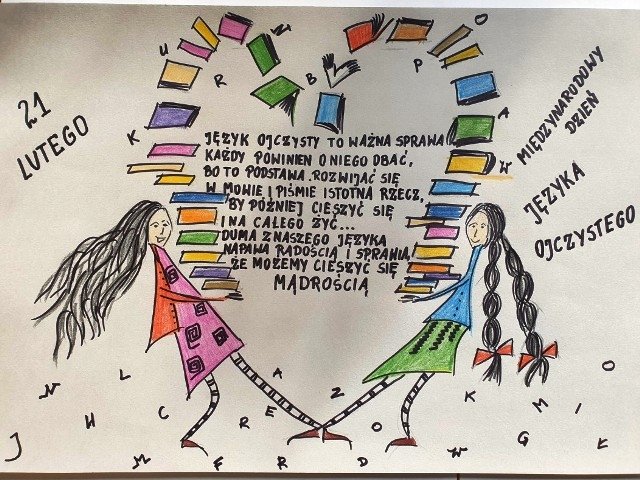 21
LUTEGO
MIĘDZYNARODOWY
DZIEŃ
JĘZYKA
OJCZYSTEGO
U R B P O
K A W
JĘZYK OJCZYSTY TO WAŻNA SPRAWA
KAŻDY POWINIEN O NIEGO DBAĆ,
BO TO PODSTAWA. ROZWIJAĆ SIĘ
W MOWIE I PIŚMIE ISTOTNA RZECZ,
BY PÓŹNIEJ CIESZYĆ SIĘ
I NA CAŁEGO ŻYĆ...
DUMA Z NASZEGO JĘZYKA
NAPAWA RADOŚCIĄ I SPRAWIA,
ŻE MOŻEMY CIESZYĆ SIĘ
MĄDROŚCIĄ
N L A Z K M I O
J H C R E O W G
M F R D